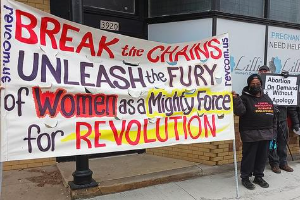 3920
BREAK the CHAINS!
UNLEASH the FURY
of Women as a Mighty Force
for REVOLUTION
revcom.us
revcom.us
PREGNANT
NEED HELP
Abortion
On Demand
Without
Apology